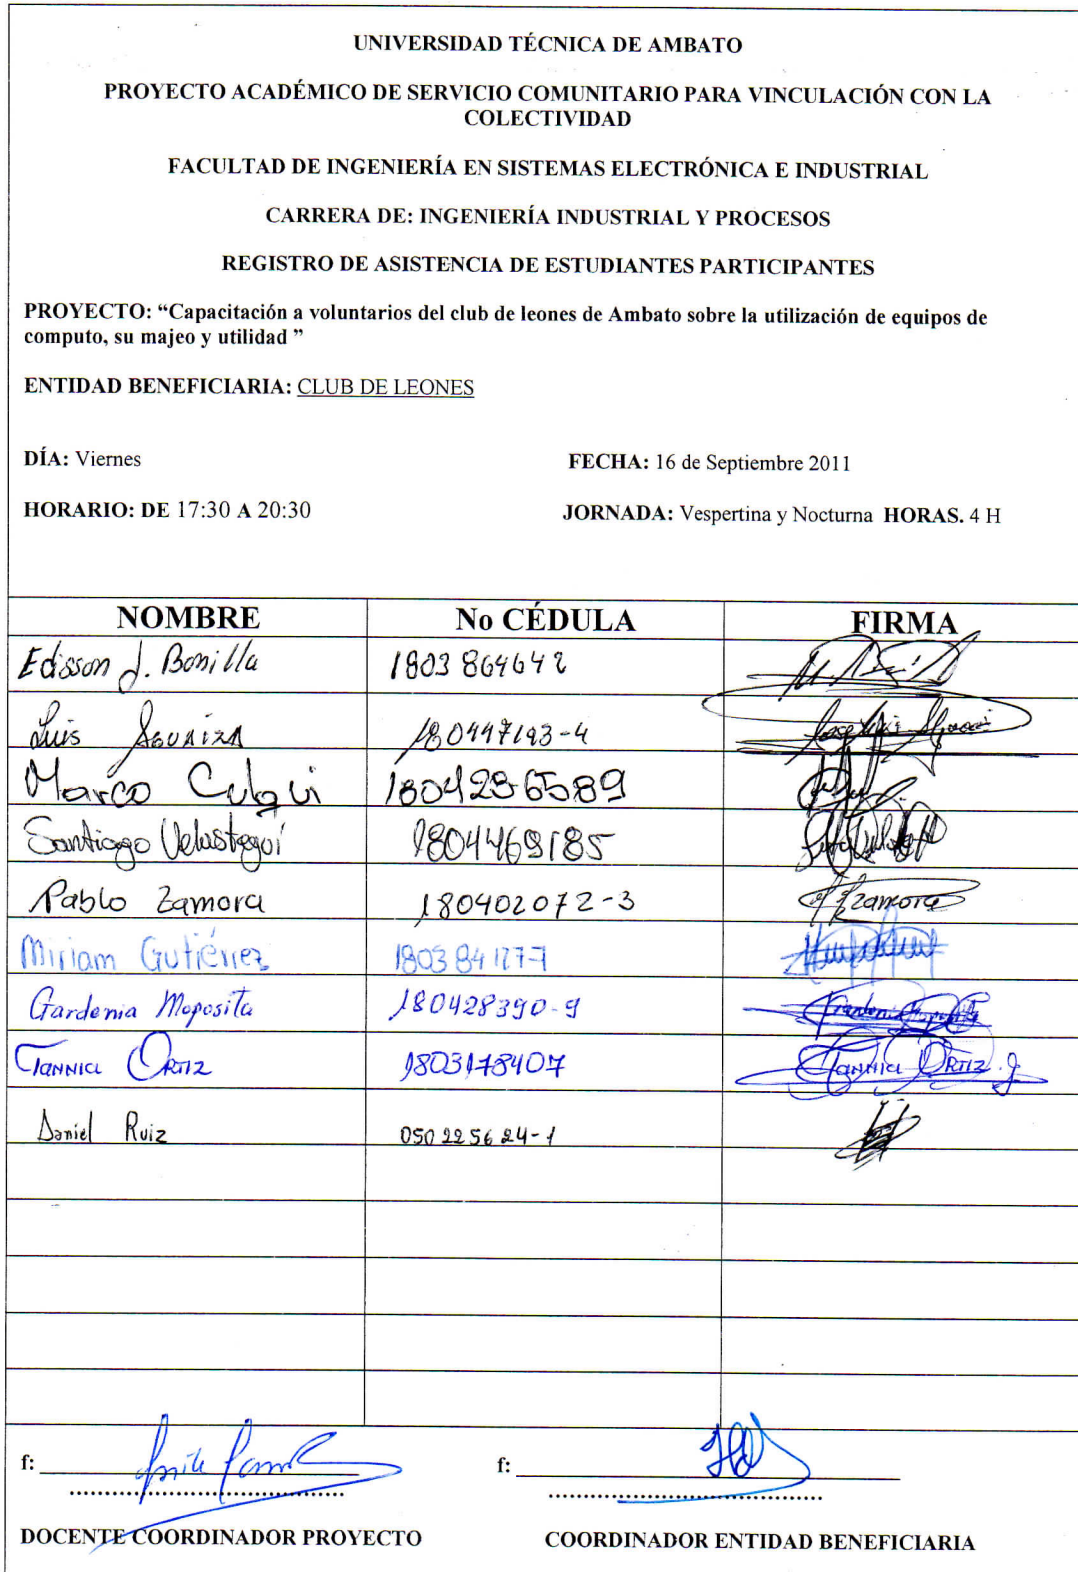 UNIVERSIDAD TÉCNICA DE AMBATO
PROYECTO ACADÉMICO DE SERVICIO COMUNITARIO PARA VINCULACIÓN CON LA
COLECTIVIDAD
FACULTAD DE INGENIERÍA EN SISTEMAS ELECTRÓNICA E INDUSTRIAL
CARRERA DE: INGENIERÍA INDUSTRIAL Y PROCESOS
REGISTRO DE ASISTENCIA DE ESTUDIANTES PARTICIPANTES
PROYECTO: “Capacitación a voluntarios del club de leones de Ambato sobre la utilización de equipos de
computo, su majeo y utilidad ”
ENTIDAD BENEFICIARIA: CLUB DE LEONES
DÍA: Viernes FECHA: 16 de Septiembre 2011
HORARIO: DE 17:30 A 20:30 JORNADA: Vespertina y Nocturna HORAS. 4 H
NOMBRE No CÉDULA FIRMA
Edisson J. Bonilla 1803864642
Luis 180447193-4
Marco Culqui 1804286589
Santiago Velastegui 1804469185
Pablo Zamora 180402072-3 Zamora
Miriam Gutiérrez 180384177-7
Gardenia Moposita 180428390-9 Gardenia Moposita
Tannia Ortiz 1803178407 Tannia Ortiz J.
Daniel Ruiz 050225624-1
f: f:
DOCENTE COORDINADOR PROYECTO COORDINADOR ENTIDAD BENEFICIARIA